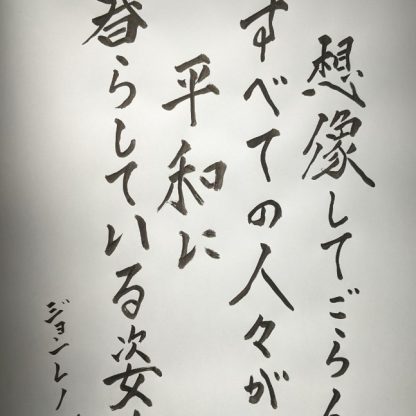 想像してごらん
すべての人々が
平和に
暮らしている姿
ジョンレノ